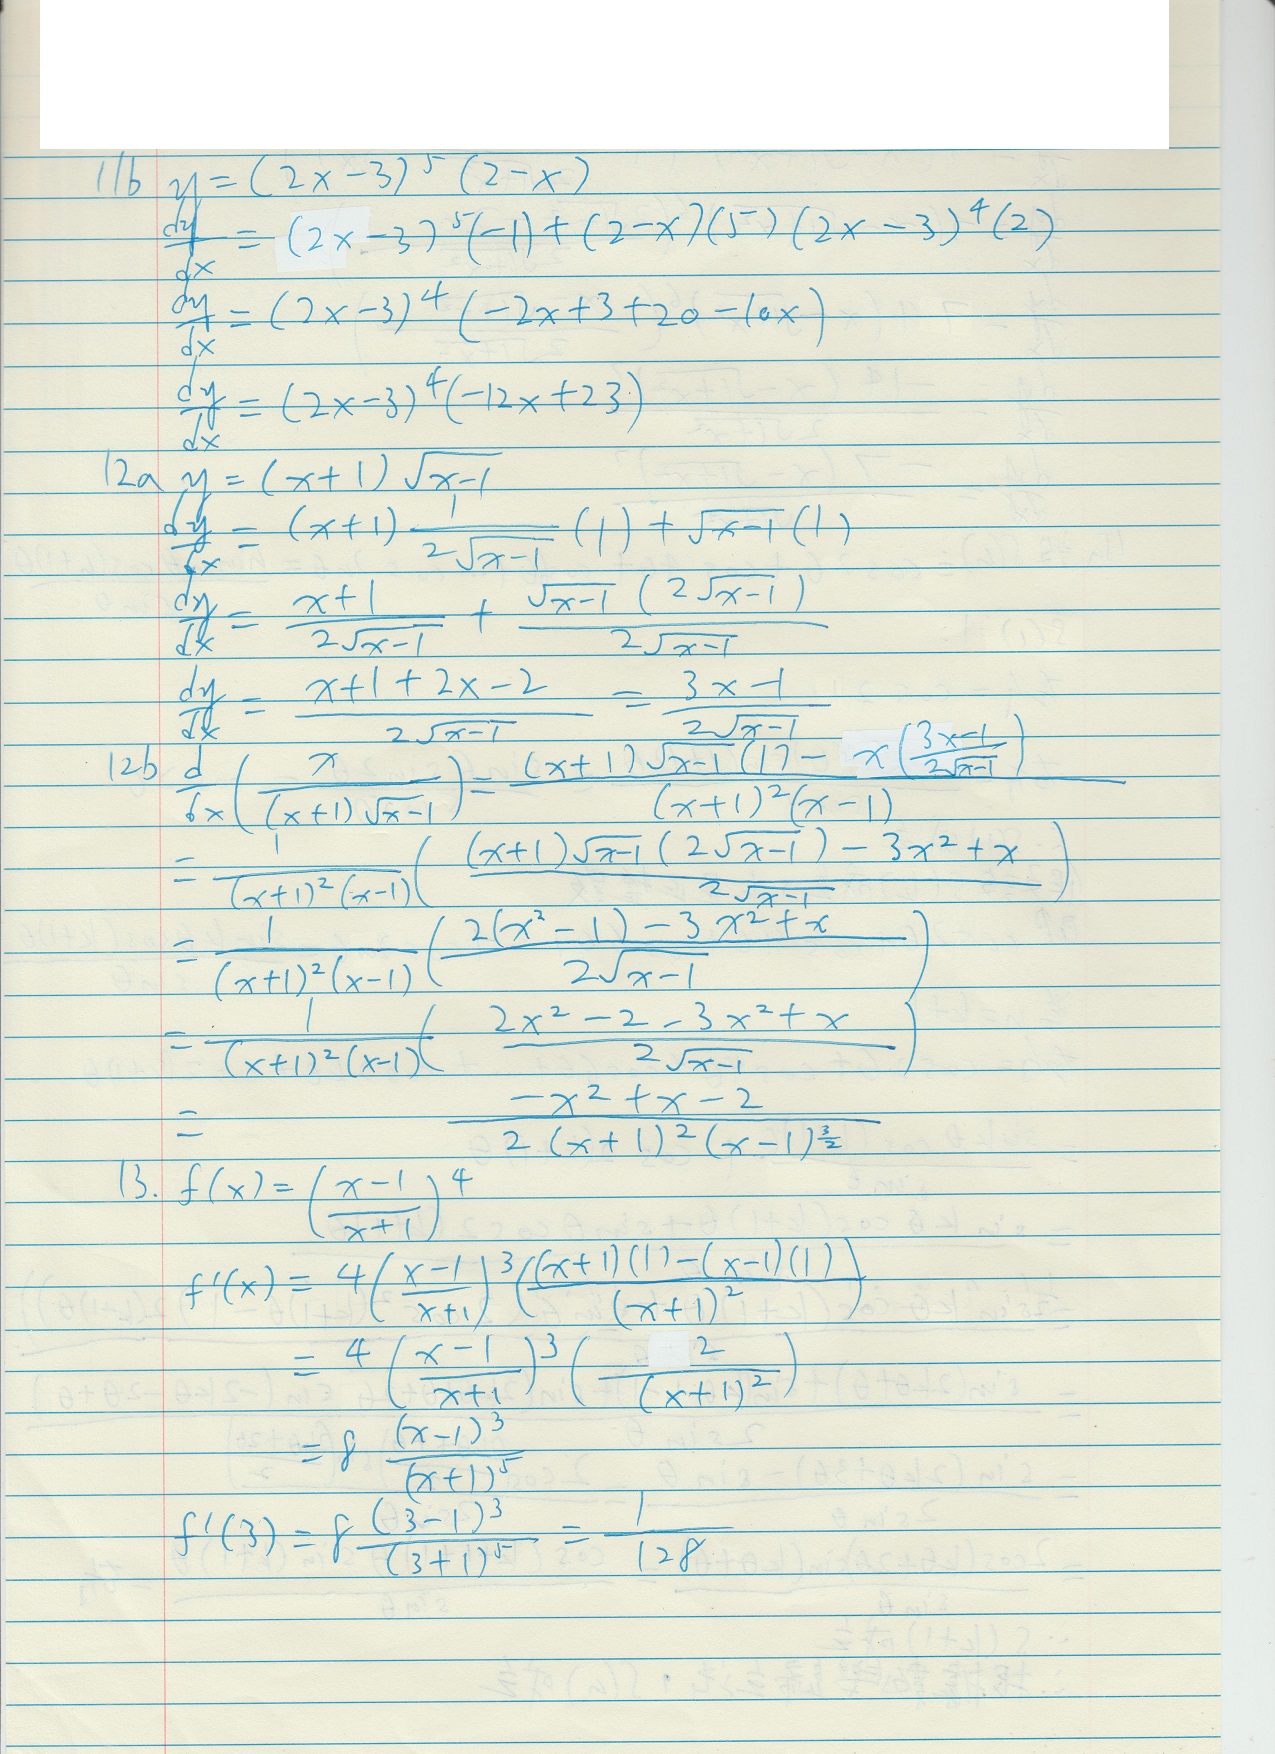 11b y = (2x-3)^5 (2-x)
dy/dx = (2x-3)^5(-1)+(2-x)(5)(2x-3)^4(2)
dy/dx = (2x-3)^4 (-2x+3+20-10x)
dy/dx = (2x-3)^4(-12x+23)
12a y = (x+1)√(x-1)
dy/dx = (x+1) 1/(2√(x-1)) (1) + √(x-1) (1)
dy/dx = (x+1)/(2√(x-1)) + (√(x-1) (2√(x-1)))/(2√(x-1))
dy/dx = (x+1+2x-2)/(2√(x-1)) = (3x-1)/(2√(x-1))
12b d/dx (x/((x+1)√(x-1))) = ((x+1)√(x-1)(1) - x((3x-1)/(2√(x-1))))/((x+1)^2(x-1))
= 1/((x+1)^2(x-1)) (((x+1)√(x-1)(2√(x-1)) - 3x^2+x)/(2√(x-1)))
= 1/((x+1)^2(x-1)) ((2(x^2-1)-3x^2+x)/(2√(x-1)))
= 1/((x+1)^2(x-1)) ((2x^2-2-3x^2+x)/(2√(x-1)))
= (-x^2+x-2)/(2(x+1)^2(x-1)^(3/2))
13. f(x) = ((x-1)/(x+1))^4
f'(x) = 4((x-1)/(x+1))^3 (((x+1)(1)-(x-1)(1))/(x+1)^2)
= 4((x-1)/(x+1))^3 (2/(x+1)^2)
= 8 (x-1)^3/(x+1)^5
f'(3) = 8 (3-1)^3/(3+1)^5 = 1/128